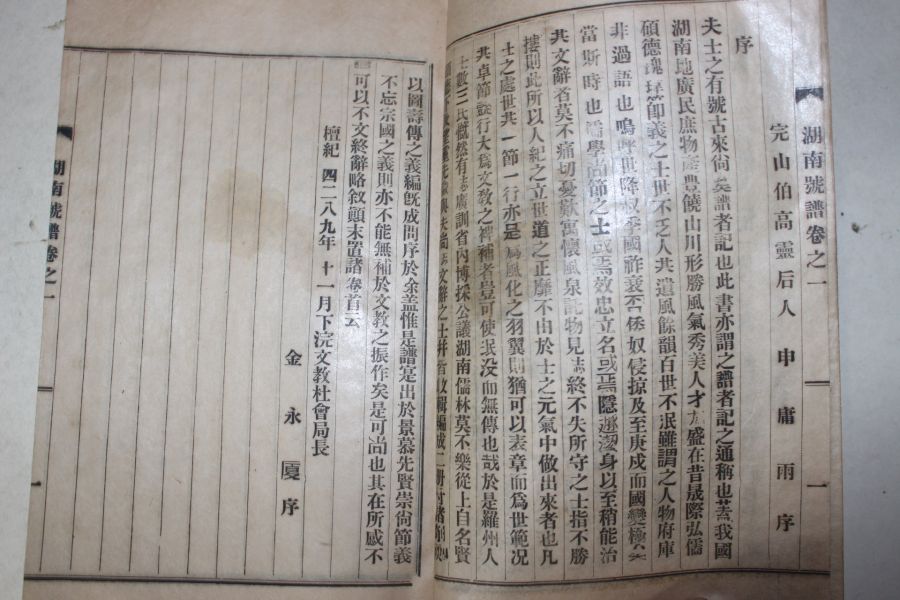 湖南號譜卷之一 一
完山伯高靈后人申庸雨序
序
夫士之有號古來尙矣譜者記也此書亦謂之譜者記之通稱也蓋我國
湖南地廣民庶物產豊饒山川形勝風氣秀美人才尤盛在昔晟際弘儒
碩德瑰瑋節義之士世不乏人其遺風餘韻百世不泯雖謂之人物府庫
非過語也嗚呼世降叔季國祚衰否倭奴侵掠及至庚戌而國變極矣
當斯時也績學尙節之士或焉效忠立名或焉隱遯潔身以至稍能治
其文辭者莫不痛切憂歎寓懷風泉託物見志終不失所守之士指不勝
摟則此所以人紀之立世道之正靡不由於士之元氣中做出來者也凡
士之處世其一節一行亦是爲風化之羽翼則猶可以表章而爲世範况
其卓節懿行大爲文敎之裨補者豈可使泯沒而無傳也哉於是羅州人
士數三氏慨然有志廣訓省內博採公議湖南儒林莫不樂從上自名賢
文辭之士幷 收輯編成二册付諸
以圖壽傳之義編旣成問序於余盖惟是譜寔出於景慕先賢崇尙節義
不忘宗國之義則亦不能無補於文敎之振作矣是可尙也其在所感不
可以不文終辭略敘顚末置諸卷首云
檀紀 四二八九年 十一月下浣文敎社會局長
金永 序
湖南號譜卷之一 一